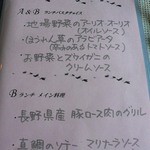 A&B ランチパスタチョイス
・地場野菜のアーリオ オーリオ
(オイルソース)
・ほうれん草のアラビアータ
(辛みのあるトマトソース)
・お野菜とズワイガニの
クリームソース
B ランチ メイン料理
・長野県産 豚ロース肉のグリル
・真鯛のソテー マリナーラソース